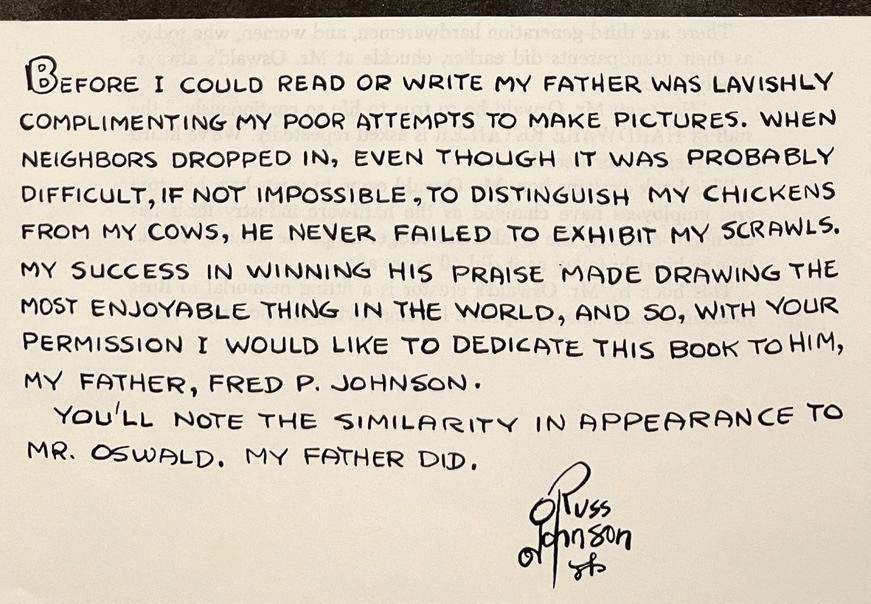 BEFORE I COULD READ OR WRITE MY FATHER WAS LAVISHLY
COMPLIMENTING MY POOR ATTEMPTS TO MAKE PICTURES. WHEN
NEIGHBORS DROPPED IN, EVEN THOUGH IT WAS PROBABLY
DIFFICULT, IF NOT IMPOSSIBLE, TO DISTINGUISH MY CHICKENS
FROM MY COWS, HE NEVER FAILED TO EXHIBIT MY SCRAWLS.
MY SUCCESS IN WINNING HIS PRAISE MADE DRAWING THE
MOST ENJOYABLE THING IN THE WORLD, AND SO, WITH YOUR
PERMISSION I WOULD LIKE TO DEDICATE THIS BOOK TO HIM,
MY FATHER, FRED P. JOHNSON.
YOU'LL NOTE THE SIMILARITY IN APPEARANCE TO
MR. OSWALD. MY FATHER DID.
Russ
Johnson